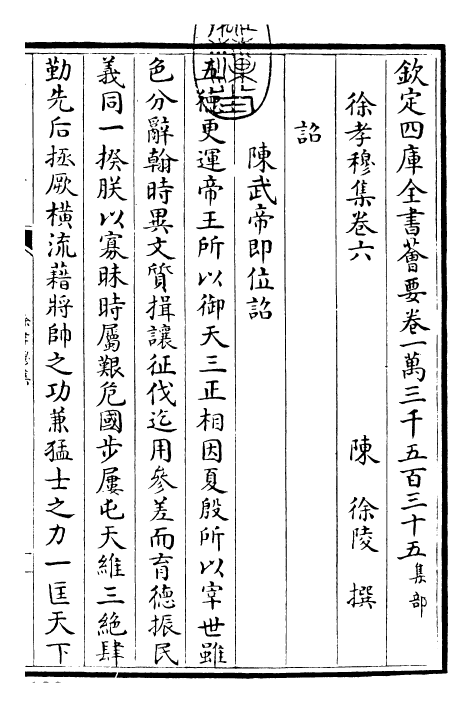 欽定四庫全書薈要卷一萬三千五百三十五集部
徐孝穆集卷六
陳 徐陵 撰
詔
陳武帝即位詔
五德更運帝王所以御天三正相因夏殷所以宰世雖
色分辭翰時異文質揖讓征伐迄用參差而育德振民
義同一揆朕以寡昧時屬艱危國步屢屯天維三絕肆
勤先后拯厥橫流藉將帥之功兼猛士之力一匡天下